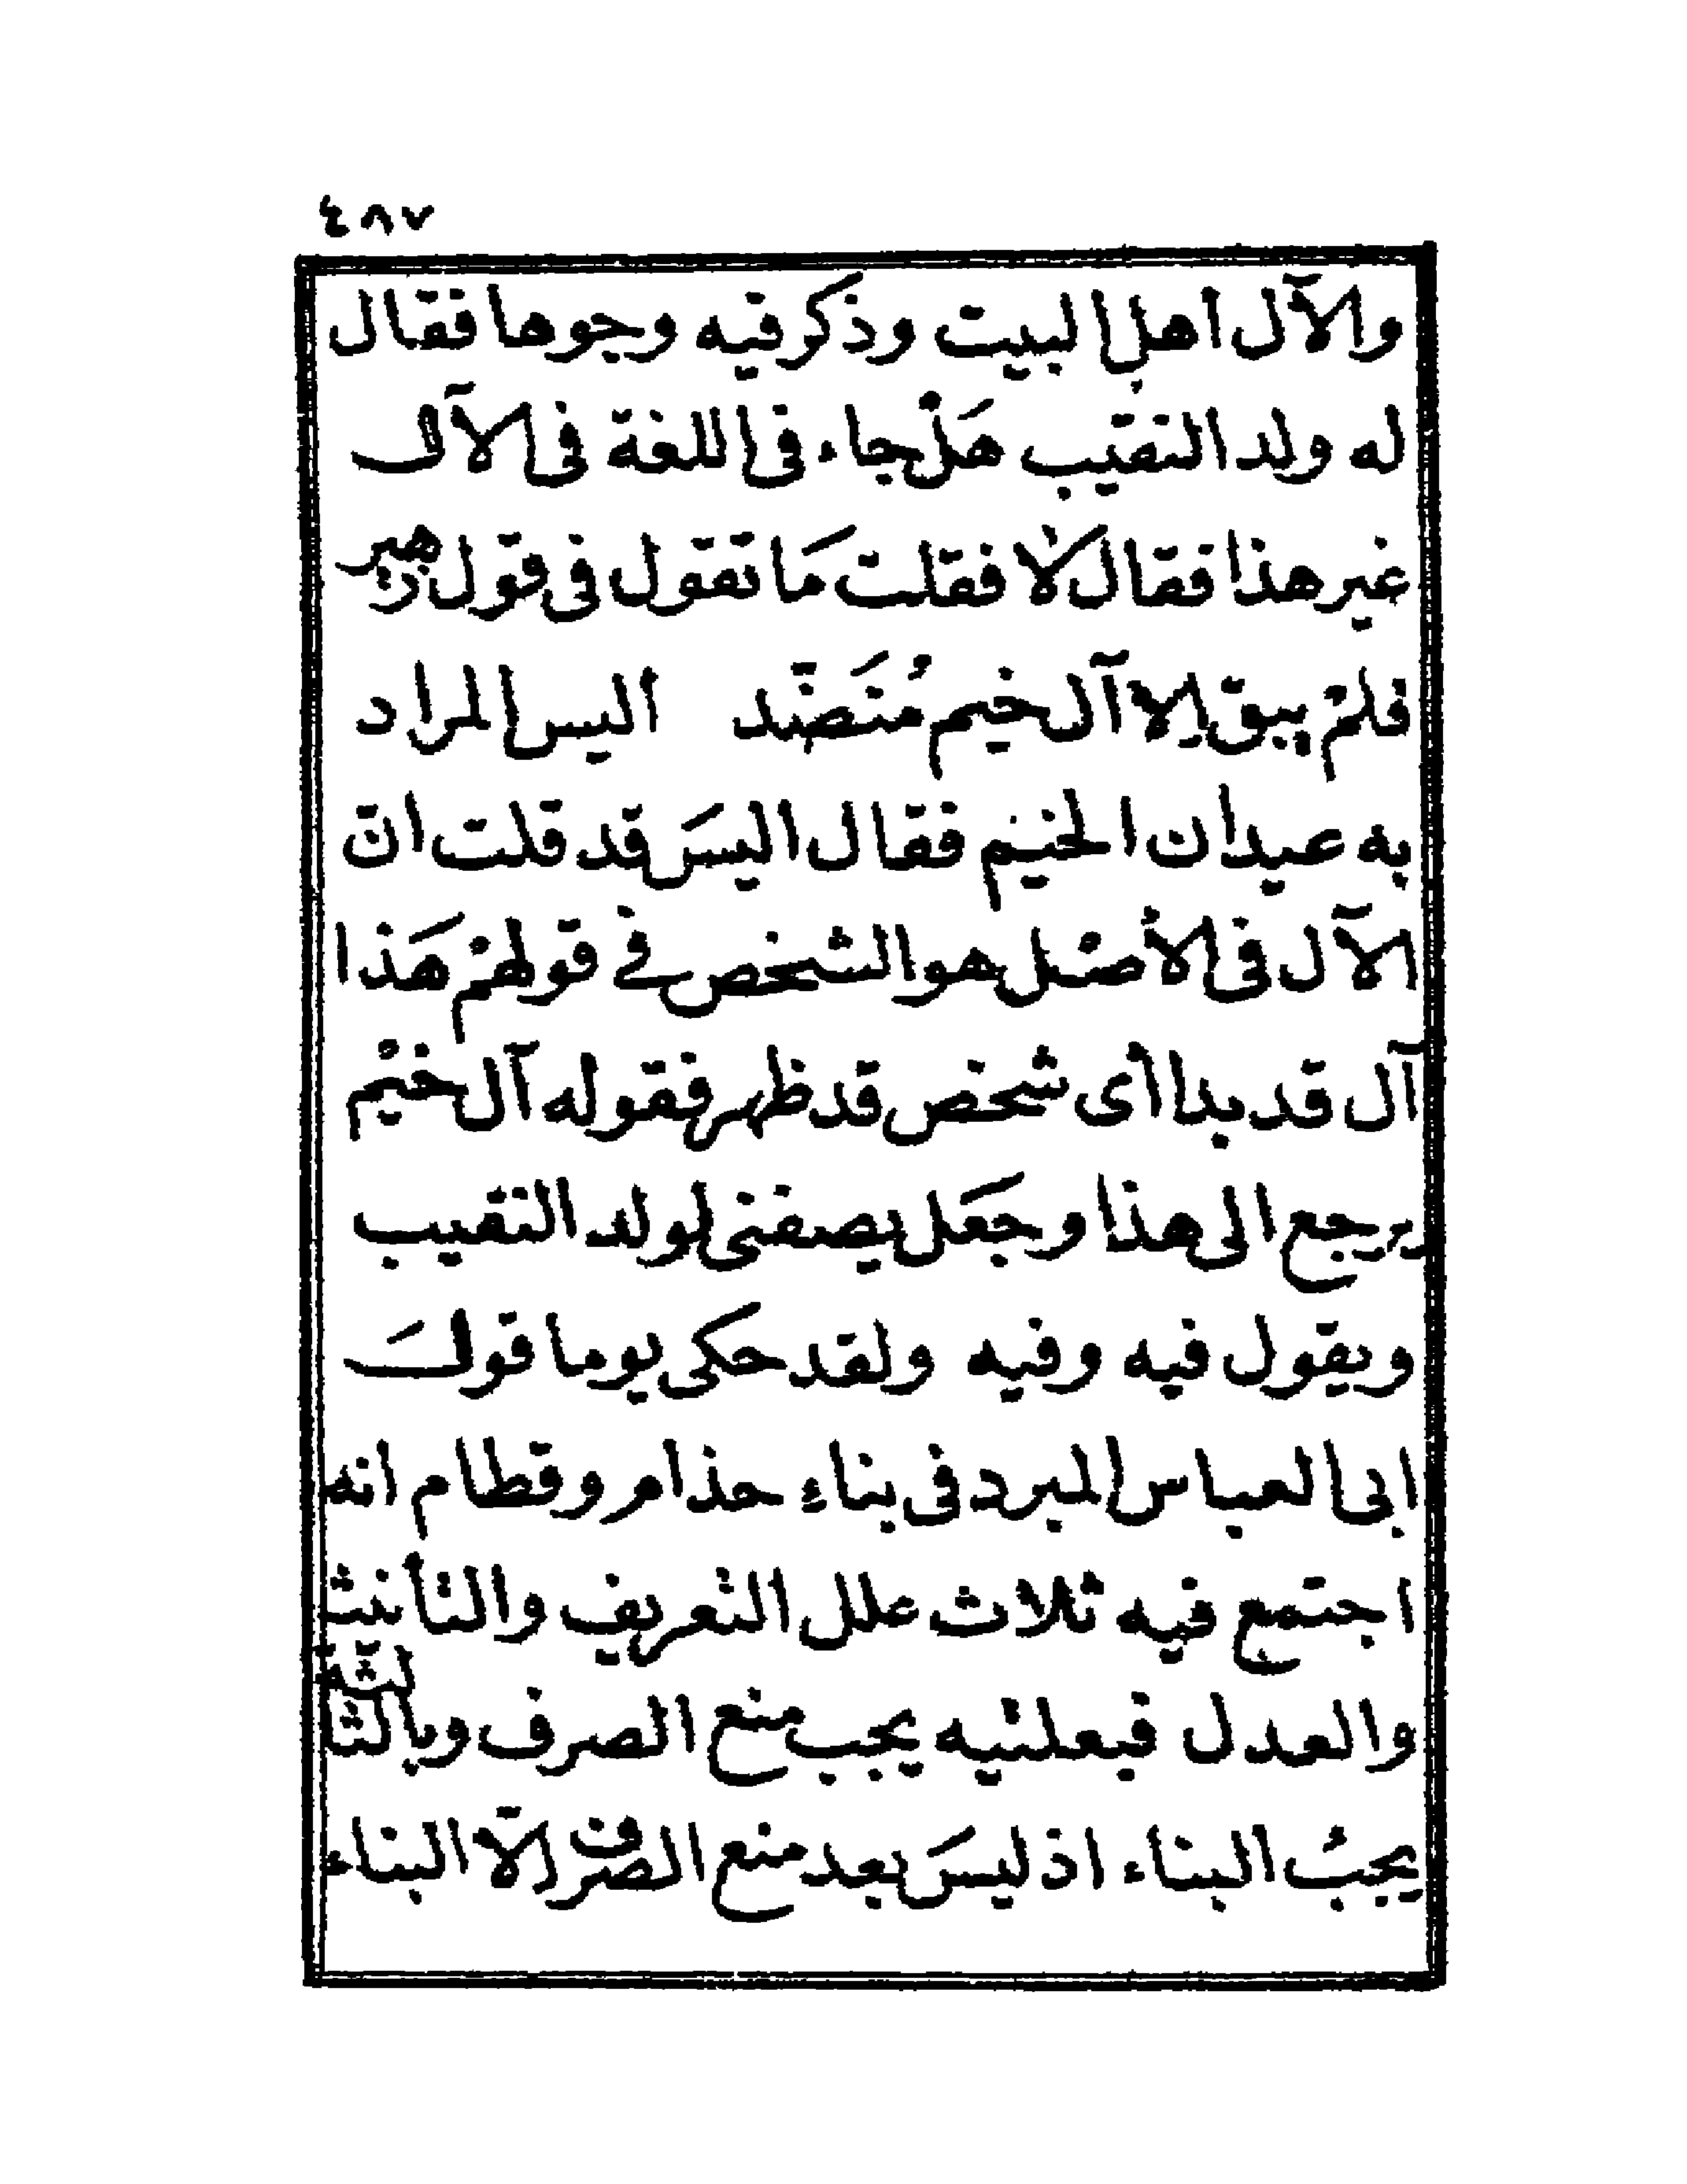 ٤٨٧
والآل اهل البيت وذكر فيه وجوها فقال
له ولد النقيب هَلْ جاء فى اللغة فى الآل
غير هذا فقال لا فقلت مَا تقول فى قول زهير
فلمْ يبق إلا آل خيم مُنَضّد اليس المراد
به عيدان الخيم فقال اليسَ قد قلت انّ
الآل فى الأصْل هو الشخص في قولهمْ هَذا
آل قد بدا أى شخص قد ظهر فقوله آل خيْم
يرجع الى هذا وجَعَل يصفنى لولد النقيب
ويقول فيه وفيه ولقد حكى يوما قولَ
ابى العباس المبرد فى بناءِ حذام وقطام انه
اجتمع فيه ثلاث علل التعريف والتأنيث
والعدل فبعلتيه يجب منع الصرف وبالثالثة
يجبُ البناء اذ ليسَ بعد منع الصرف الّا البناء